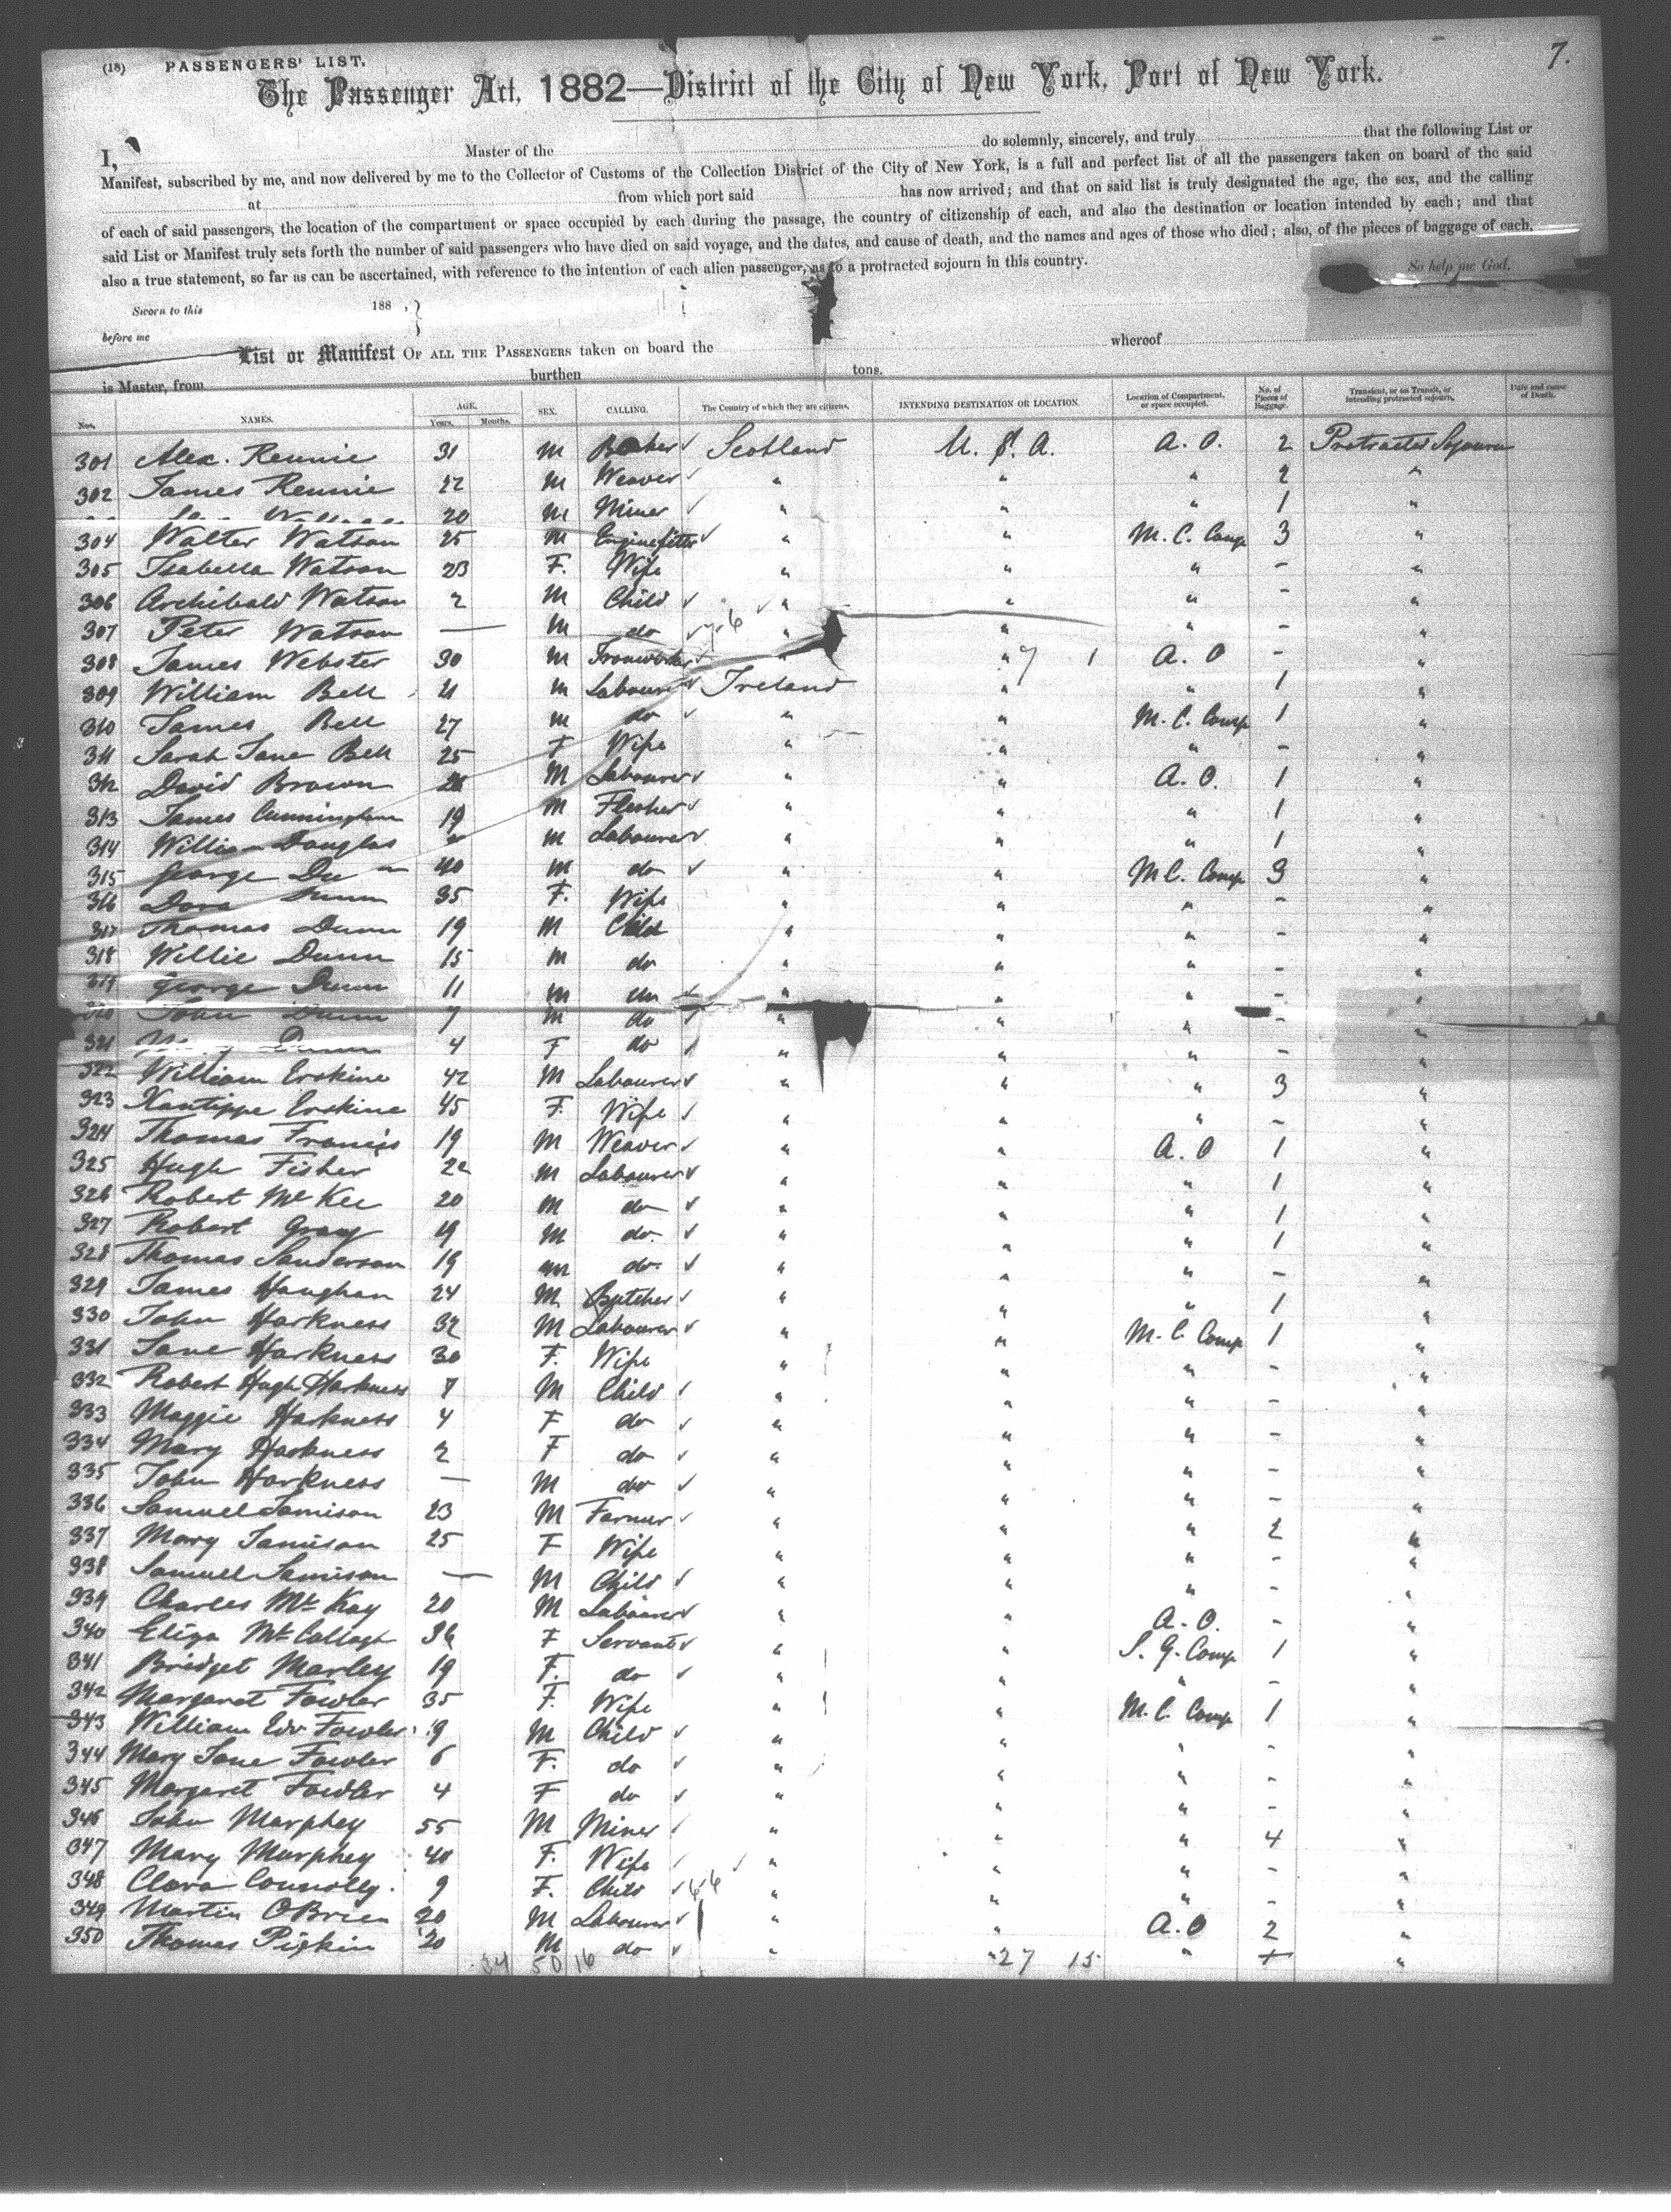 7.
(18) PASSENGERS' LIST.
The Passenger Act, 1882—District of the City of New York, Port of New York.
I, Master of the do solemnly, sincerely, and truly that the following List or
Manifest, subscribed by me, and now delivered by me to the Collector of Customs of the Collection District of the City of New York, is a full and perfect list of all the passengers taken on board of the said
at from which port said has now arrived; and that on said list is truly designated the age, the sex, and the calling
of each of said passengers, the location of the compartment or space occupied by each during the passage, the country of citizenship of each, and also the destination or location intended by each; and that
said List or Manifest truly sets forth the number of said passengers who have died on said voyage, and the dates, and cause of death, and the names and ages of those who died; also, of the pieces of baggage of each,
also a true statement, so far as can be ascertained, with reference to the intention of each alien passenger, as to a protracted sojourn in this country. So help me God,
Sworn to this 188 , }
before me
List or Manifest OF ALL THE PASSENGERS taken on board the whereof
is Master, from burthen tons.
Nos. NAMES. AGE. Years. Months. SEX. CALLING. The Country of which they are citizens. INTENDING DESTINATION OR LOCATION. Location of Compartment, or space occupied. No. of Pieces of Baggage. Transient, or on Transit, or intending protracted sojourn. Date and cause of Death.
301 Alex. Rennie 31 M Baker Scotland U. S. A. A. O. 2 Protracted Sojourn
302 James Rennie 22 M Weaver " " " 2 "
20 M Miner " " " 1 "
304 Walter Watson 25 M Enginefitter " " M. C. Comp 3 "
305 Isabella Watson 23 F. Wife " " " - "
306 Archibald Watson 2 M Child " " " - "
307 Peter Watson — M do " " " - "
308 James Webster 30 M Ironworker " " A. O - "
309 William Bell 21 M Labourer Ireland " " 1 "
310 James Bell 27 M do " " M. C. Comp 1 "
311 Sarah Jane Bell 25 F Wife " " " - "
312 David Brown M Labourer " " A. O. 1 "
313 James Cunningham 19 M Flesher " " " 1 "
314 William Douglas M Labourer " " " 1 "
315 George 40 M do " " M C. Comp 3 "
316 Dora Dunn 35 F. Wife " " " - "
317 Thomas Dunn 19 M Child " " " - "
318 Willie Dunn 15 M do " " " - "
319 George Dunn 11 M do " " " - "
320 John Dunn 7 M do " " " - "
321 Dunn 4 F do " " " - "
322 William Erskine 42 M Labourer " " " 3 "
323 Xantippe Erskine 45 F. Wife " " " - "
324 Thomas Francis 19 M Weaver " " A. O 1 "
325 Hugh Fisher 22 M Labourer " " " 1 "
326 Robert McKee 20 M do " " " 1 "
327 Robert Gray 19 M do. " " " 1 "
328 Thomas Sanderson 19 M do. " " " - "
329 James Haughan 24 M Butcher " " " 1 "
330 John Harkness 32 M Labourer " " M. C. Comp 1 "
331 Jane Harkness 30 F. Wife " " " - "
332 Robert Hugh Harkness 7 M Child " " " - "
333 Maggie Harkness 4 F do " " " - "
334 Mary Harkness 2 F do " " " - "
335 John Harkness — M do " " " - "
336 Samuel Jamison 23 M Farmer " " " 2 "
337 Mary Jamison 25 F Wife " " " - "
338 Samuel Jamison — M Child " " " - "
339 Charles McKay 20 M Labourer " " A. O. - "
340 Eliza McCallagh 36 F Servant " " S. G. Comp 1 "
341 Bridget Marley 19 F. do " " " - "
342 Margaret Fowler 35 F. Wife " " M. C. Comp 1 "
343 William Edw Fowler 9 M Child " " " - "
344 Mary Jane Fowler 6 F. do " " " - "
345 Margaret Fowler 4 F do " " " - "
346 John Murphey 55 M Miner " " " 4 "
347 Mary Murphey 40 F. Wife " " " - "
348 Clara Connolly. 9 F. Child " " " - "
349 Martin O'Brien 20 M Labourer " " A. O 2 "
350 Thomas Pipkin 20 M do " " " "
34 50 16 27 15